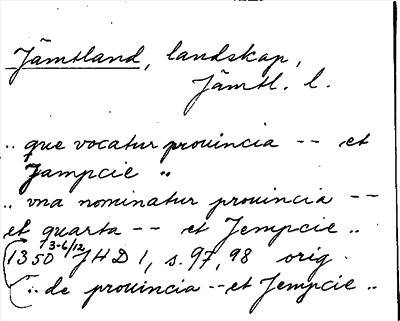 Jämtland, landskap,
Jämtl. l.
.. que vocatur prouincia -- et
Jampcie ..
.. vna nominatur prouincia --
et quarta -- et Jempcie ..
1350 3-6/12 JHD 1, s. 97, 98 orig.
(.. de prouincia -- et Jempcie ..